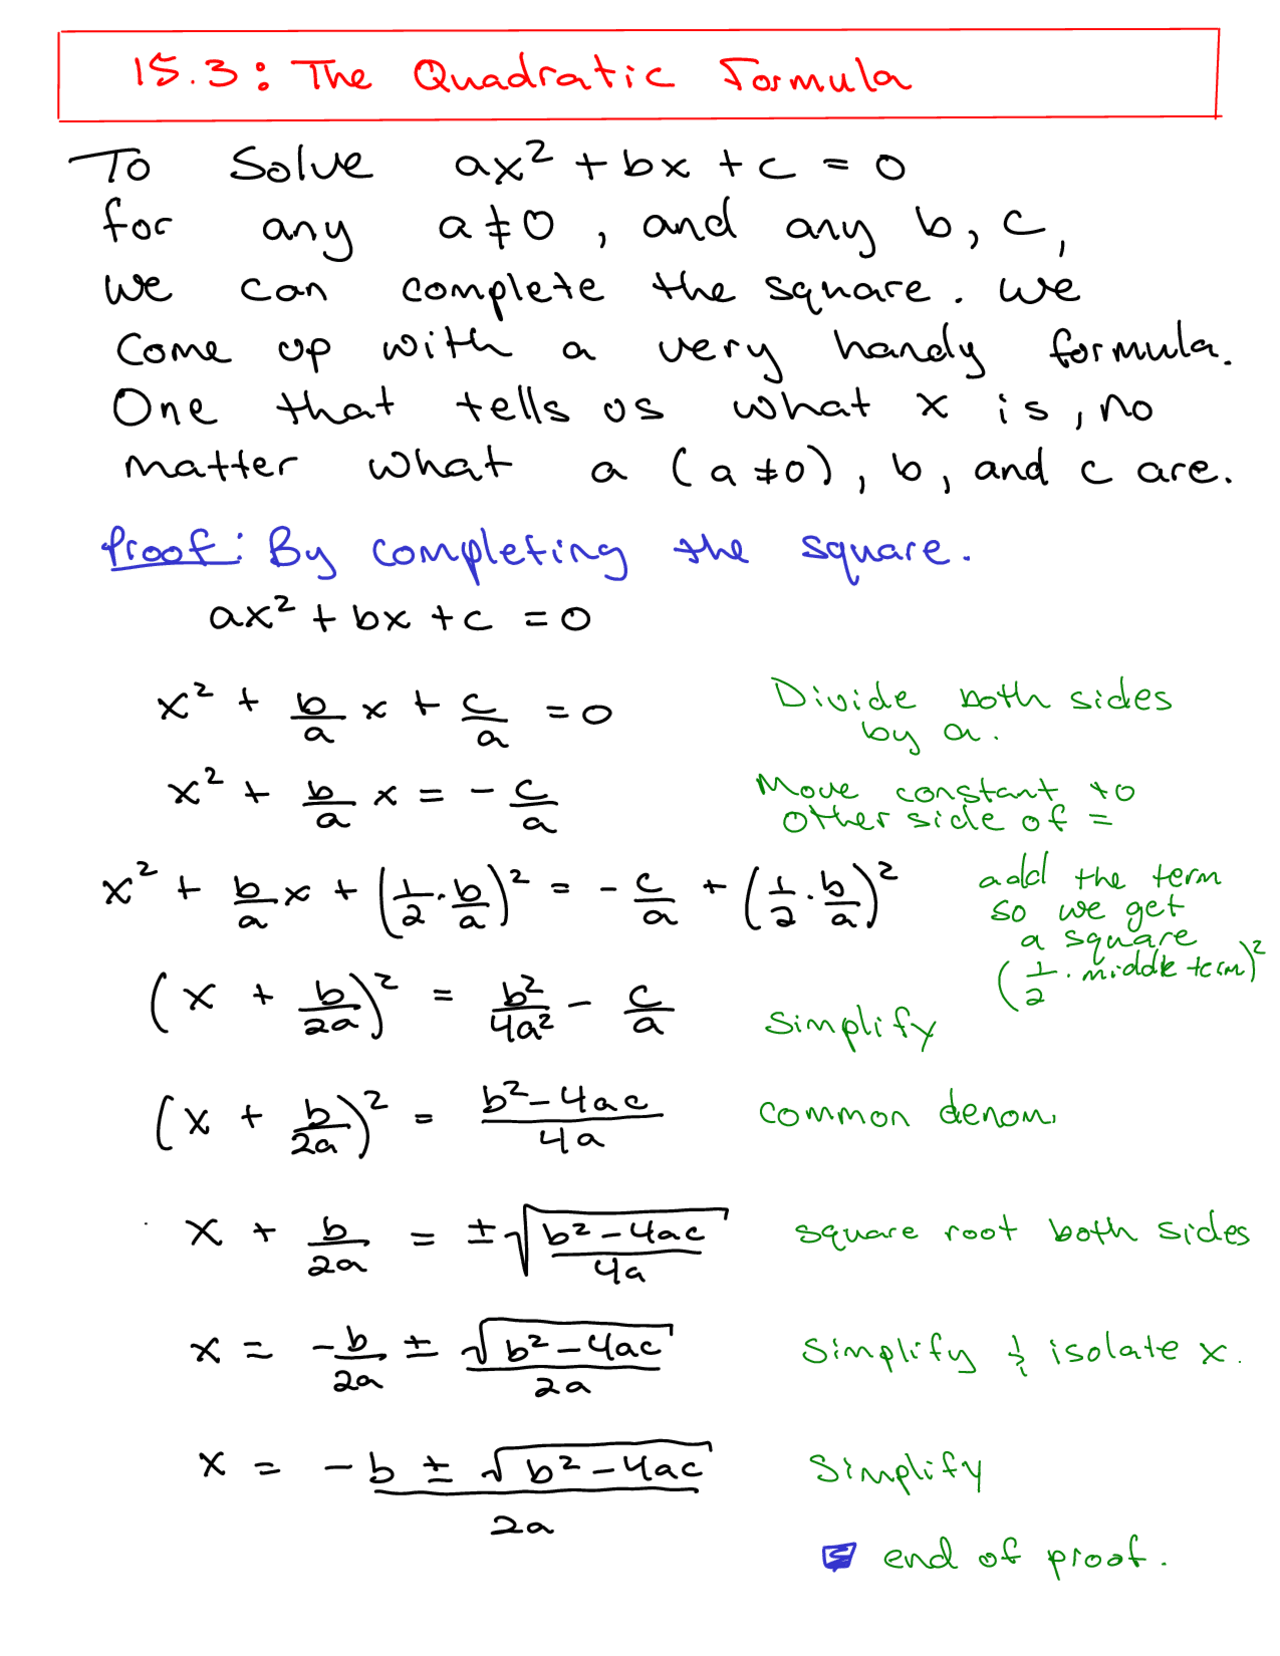 15.3: The Quadratic Formula
To Solve ax² + bx + c = 0
for any a≠0, and any b, c,
we can complete the square. We
come up with a very handy formula.
One that tells us what x is, no
matter what a (a≠0), b, and c are.
Proof: By completing the square.
ax² + bx + c = 0
x² + b/a x + c/a = 0 Divide both sides
by a.
x² + b/a x = - c/a Move constant to
other side of =
x² + b/a x + (1/2 · b/a)² = - c/a + (1/2 · b/a)² add the term
so we get
a square
(1/2 · middle term)²
(x + b/2a)² = b²/4a² - c/a Simplify
(x + b/2a)² = b²-4ac/4a common denom.
x + b/2a = ±√(b²-4ac/4a) square root both sides
x = -b/2a ± √(b²-4ac)/2a Simplify & isolate x.
x = -b ± √(b²-4ac)/2a Simplify
end of proof.